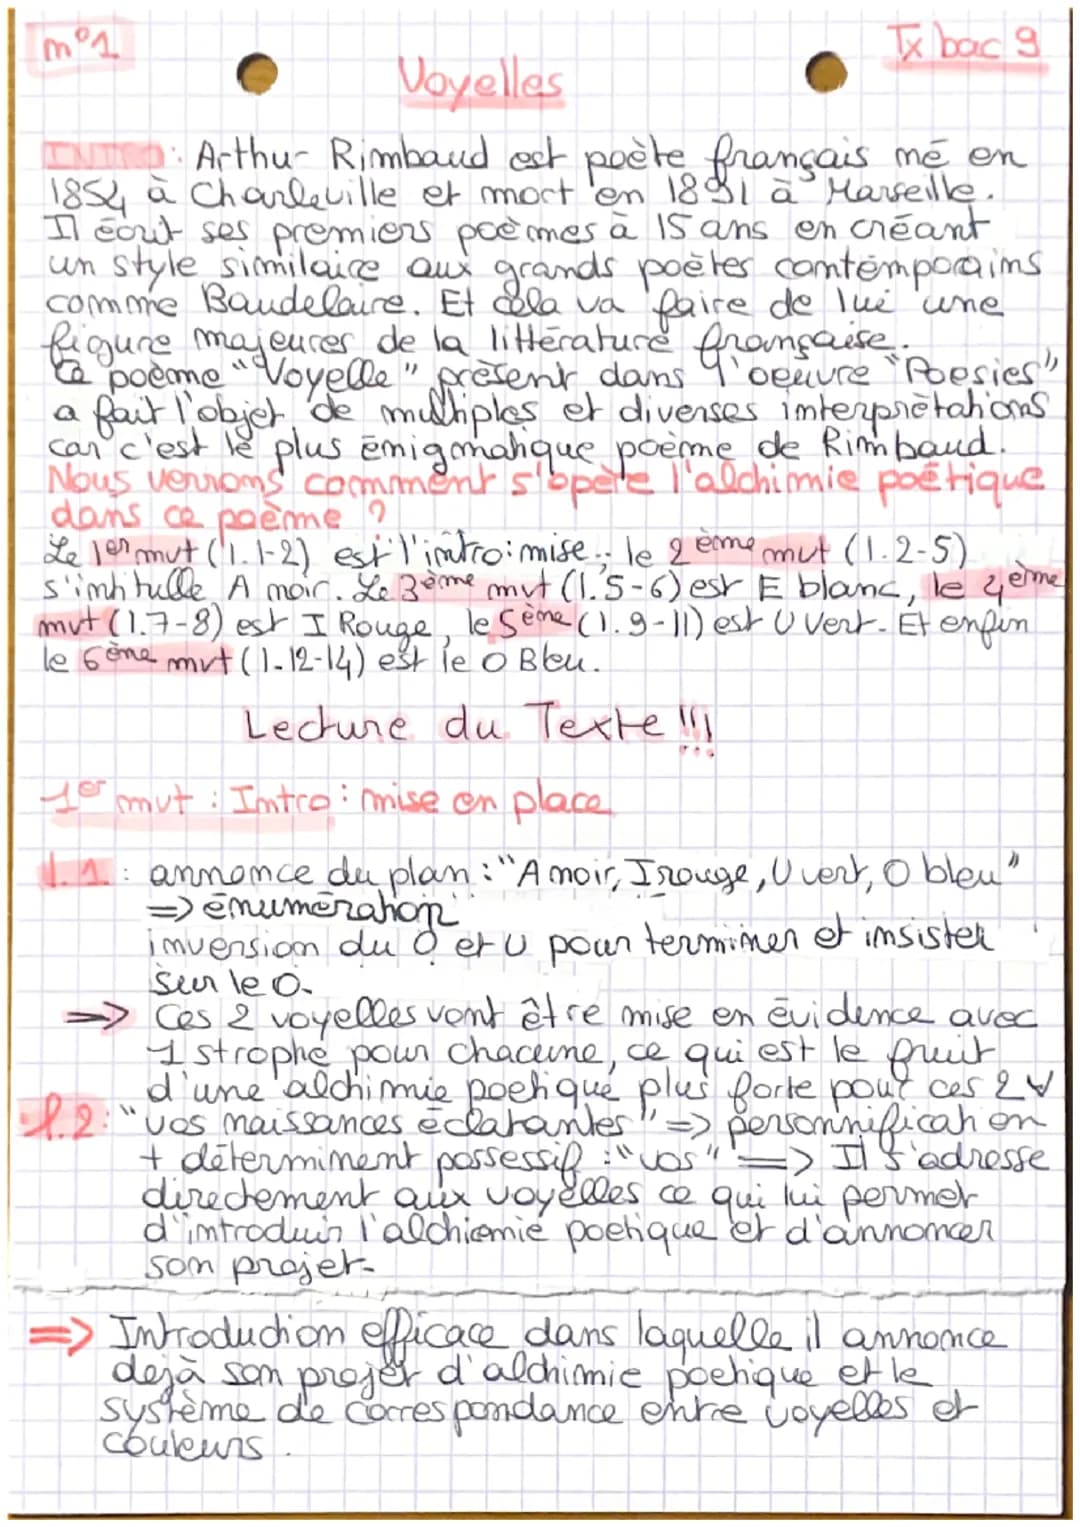 n°1
Tx bac 9
Voyelles
INTRO: Arthur Rimbaud est poète français né en
1854 à Charleville et mort en 1891 à Marseille.
Il écrit ses premiers poèmes à 15 ans en créant
un style similaire aux grands poètes contemporains
comme Baudelaire. Et cela va faire de lui une
figure majeures de la littérature française.
Ce poème "Voyelle" présent dans l'oeuvre "Poesies"
a fait l'objet de multiples et diverses interprétations
car c'est le plus énigmatique poème de Rimbaud.
Nous verrons comment s'opère l'alchimie poétique
dans ce poème ?
Le 1er mvt (l.1-2) est l'intro: mise.. le 2ème mvt (l.2-5)
s'intitulle A noir. Le 3ème mvt (l.5-6) est E blanc, le 4ème
mvt (l.7-8) est I Rouge, le 5ème (l.9-11) est U Vert. Et enfin
le 6ème mvt (l.12-14) est le O Bleu.
Lecture du Texte !!!
1er mvt : Intro : mise en place
l.1 : annonce du plan : "A noir, I rouge, U vert, O bleu"
=> énumération
inversion du O et U pour terminer et insister
sur le O.
=> Ces 2 voyelles vont être mise en évidence avec
1 strophe pour chacune, ce qui est le fruit
d'une alchimie poetique plus forte pour ces 2 V
l.2: "vos naissances éclatantes" => personnification
+ déterminent possessif : "vos" => Il s'adresse
directement aux voyelles ce qui lui permet
d'introduir l'alchiemie poetique et d'annoncer
son projet.
=> Introduction efficace dans laquelle il annonce
dejà son projet d'alchimie poetique et le
système de correspondance entre voyelles et
couleurs.